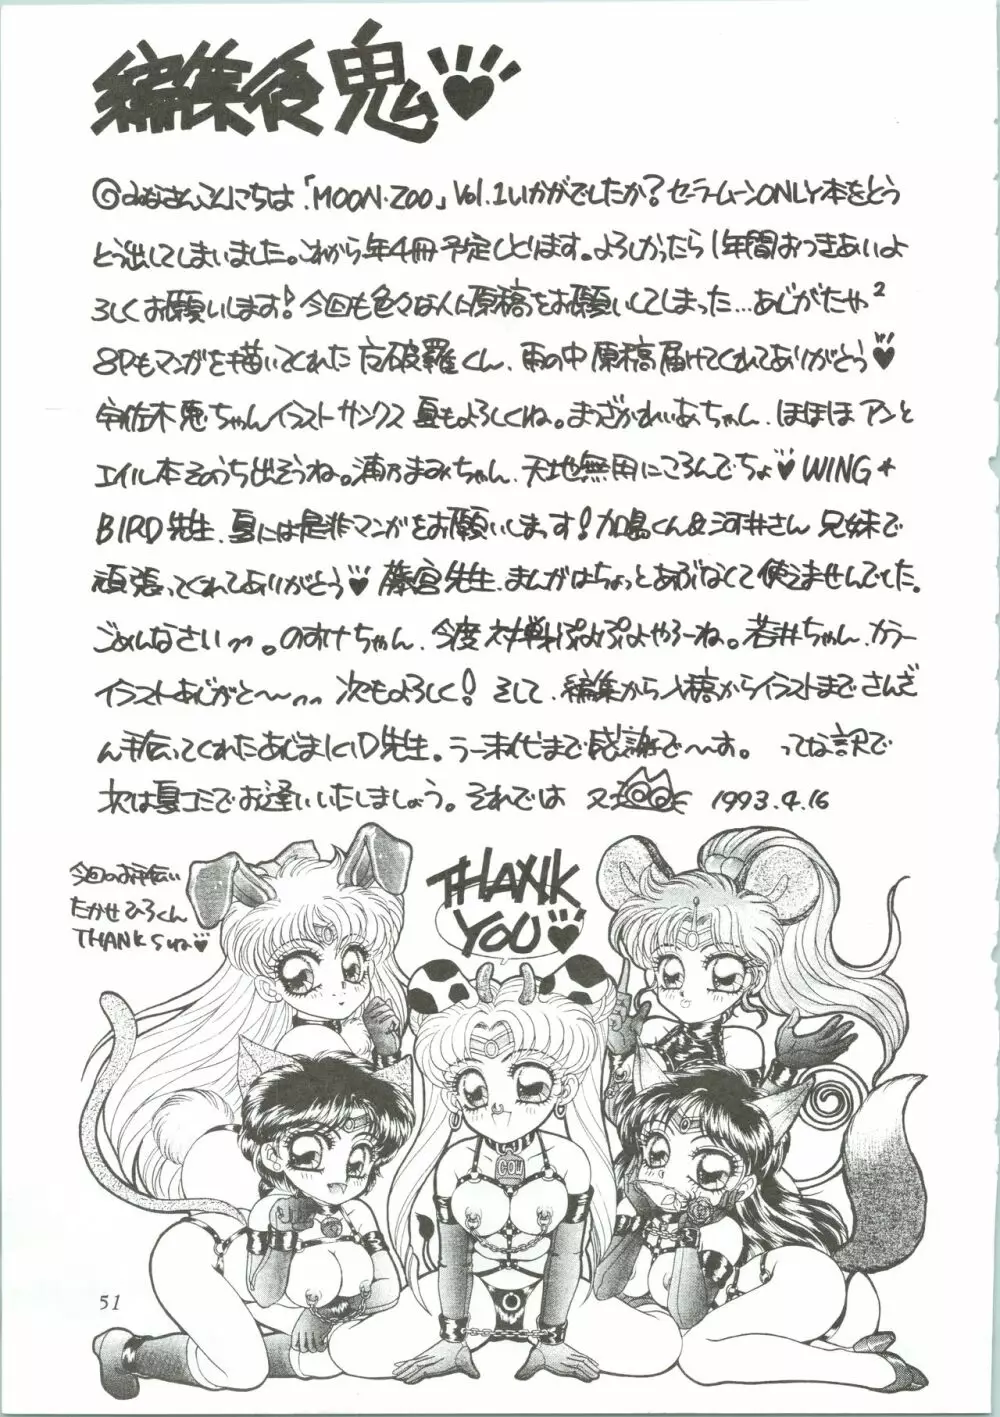 編集後鬼
◎みなさんこんにちは「MOON・ZOO」Vol.1いかがでしたか？セーラームーンONLY本をとう
とう出してしまいました。これから年4冊予定しとります。よろしかったら1年間おつきあいよ
ろしくお願いします！今回も色々な人に原稿をお願いしてしまった…ありがたや²
8Pもマンガを描いてくれた 破羅くん、雨の中原稿届けてくれてありがとう♥
宇佐木 ちゃんイラストサンクス 夏もよろしくね。まっざかれいあちゃん、ほほほアンと
エイル本そのうち出そうね。浦乃まみちゃん、天地無用にころんでちょ♥WING★
BIRD先生、夏には是非マンガをお願いしまっす！加島くん&河井さん 兄妹で
頑張ってくれてありがとう♥藤宮先生、まんがはちょっとあぶなくて使えませんでした。
ごめんなさいっっ。のすけちゃん、今度対戦ぷよぷよやろーね。若井ちゃん、カラー
イラストありがと～～っっ 次もよろしく！そして、編集から入稿からイラストまでさんざ
ん手伝ってくれたあじまKID先生。うー末代まで感謝で～す。ってな訳で
次は夏コミでお逢いいたしましょう。それでは 1993.4.16
今回のお手伝い
たかせひろくん
THANKSっす♥
THANK
YOU♥
COW
51